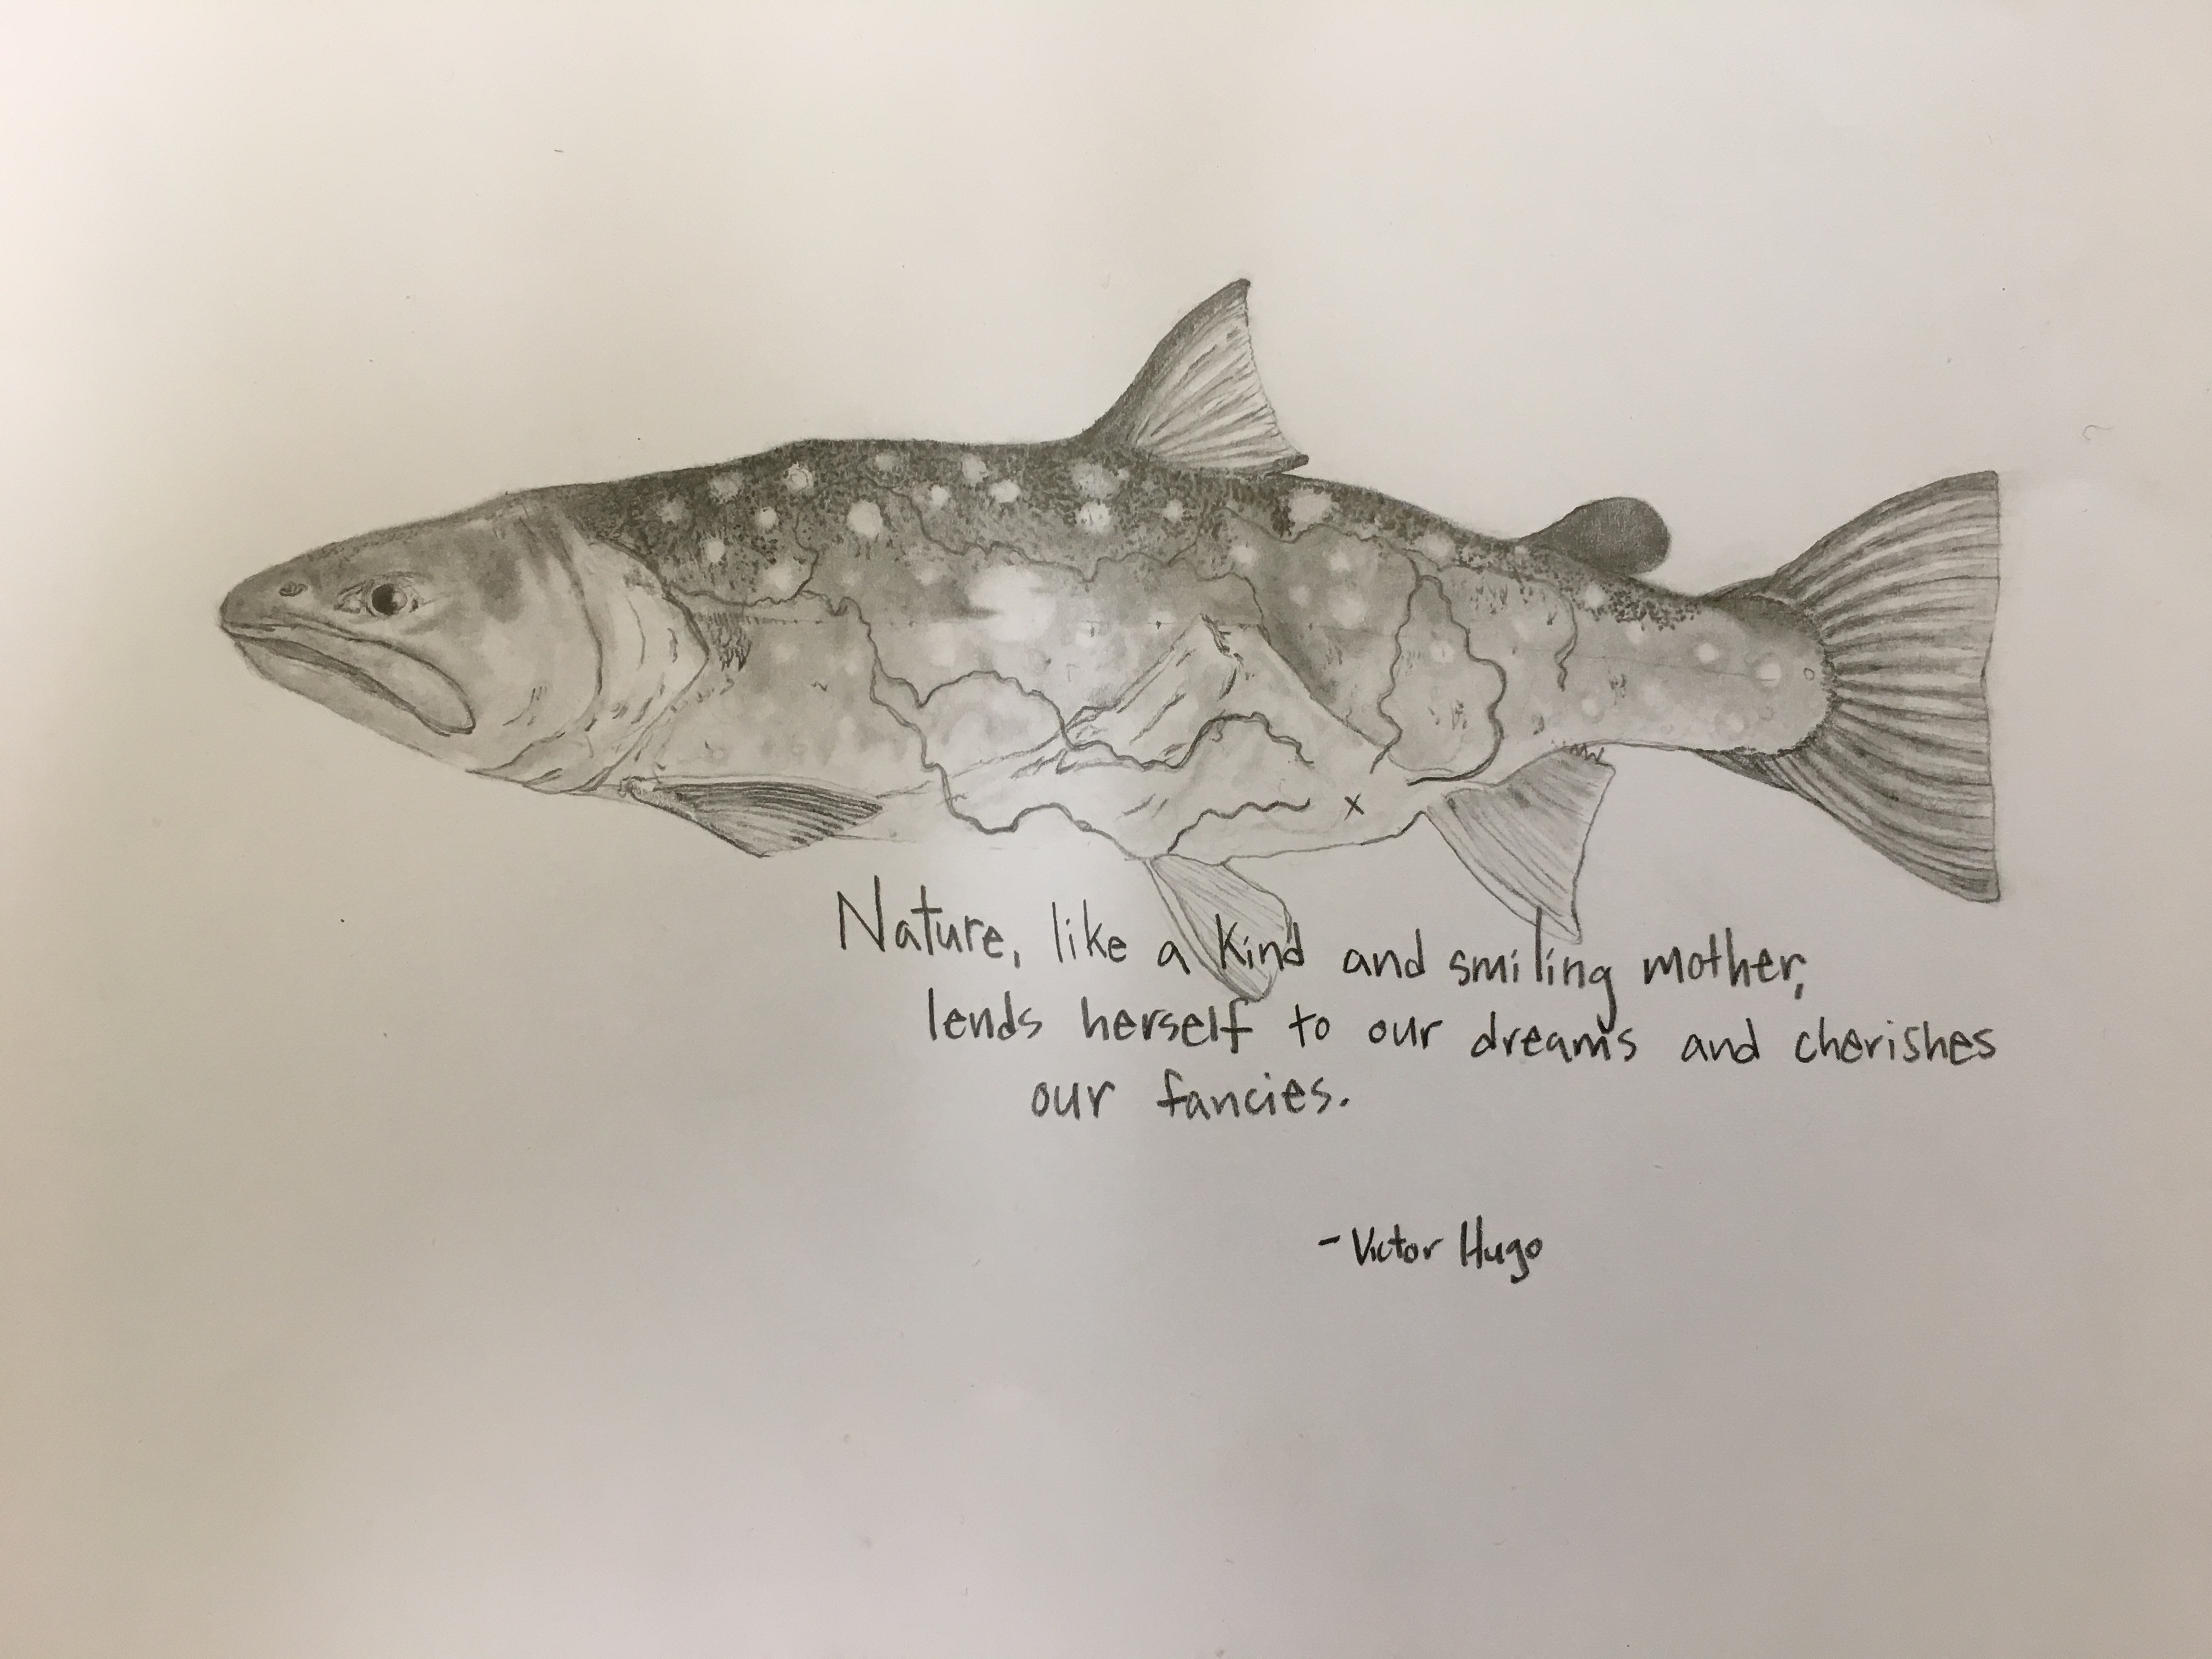 Nature, like a kind and smiling mother,
lends herself to our dreams and cherishes
our fancies.
- Victor Hugo
x